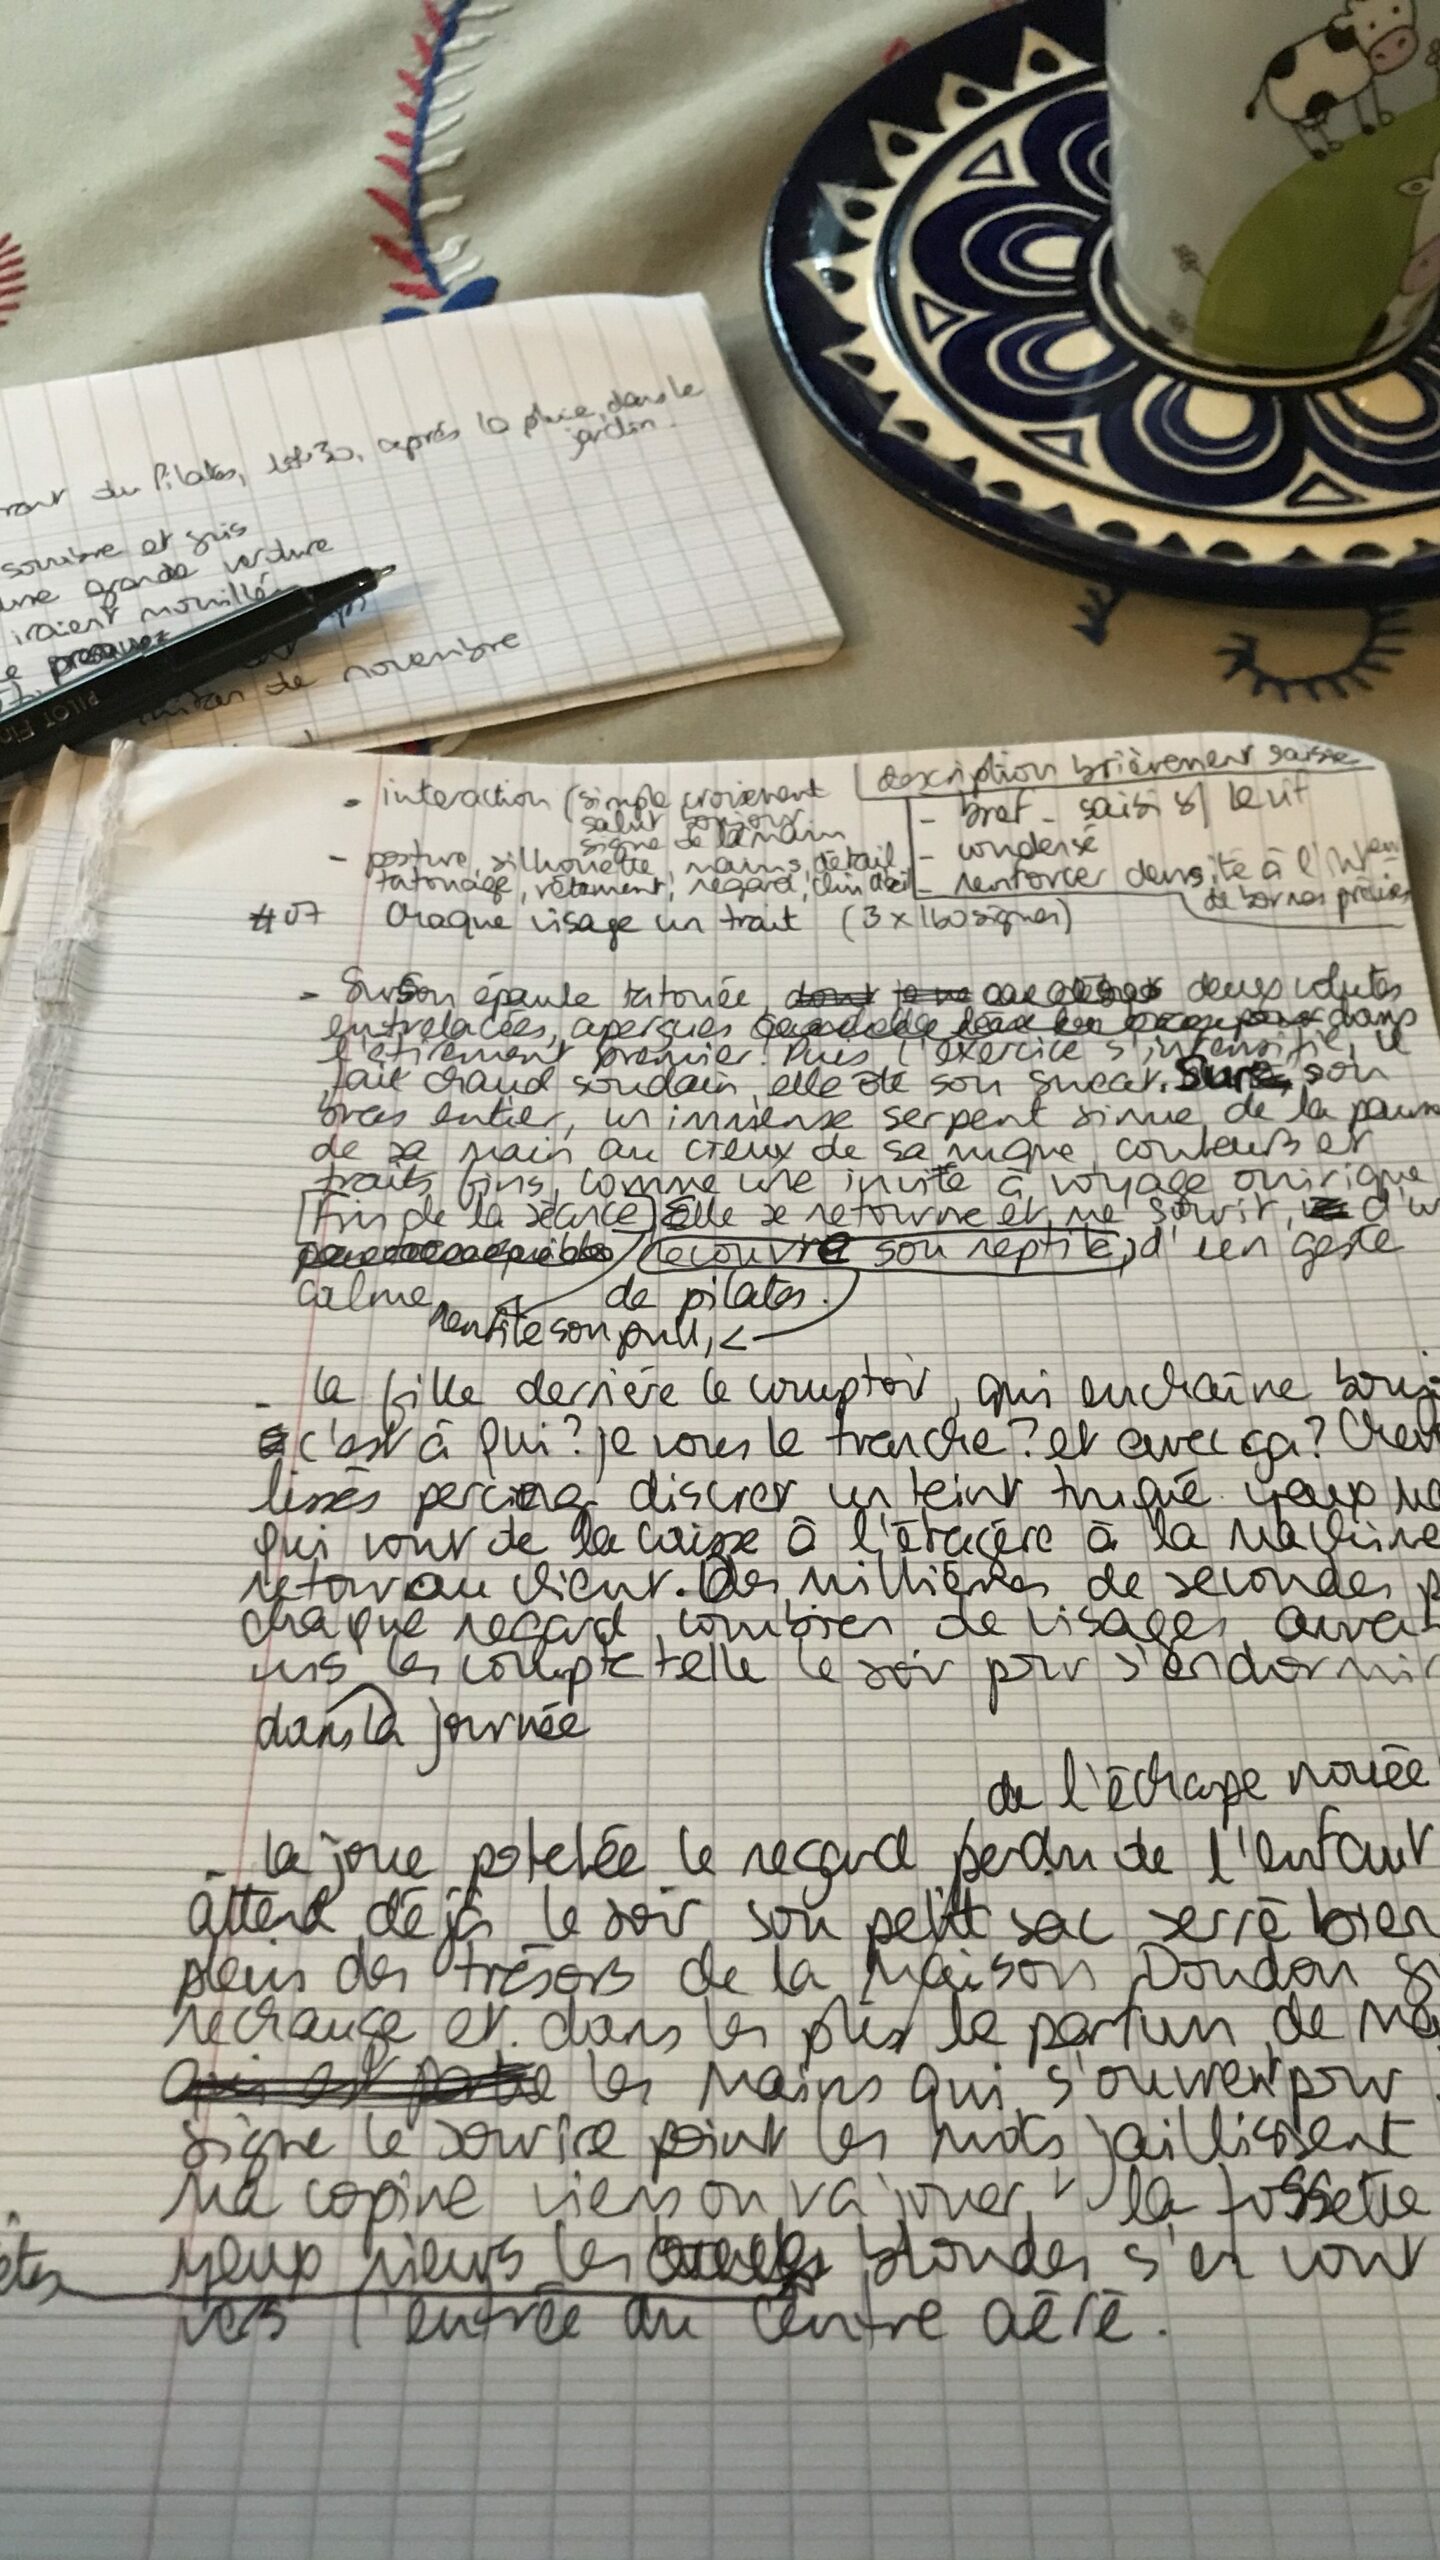 du Pilates, 18h30, après la pluie, dans le
jardin.
sombre et gris
une grande voiture
iraient mouillé
presque
de novembre
PILOT Fin
- interaction (simple croisement
salut bonjour
signe de la main
- posture, silhouette, mains, détail
tatouage, vêtement, regard, clin d'œil
description brièvement saisie
- bref - saisi s/ le vif
- condensé
- renforcer densité à l'int
de bornes précises
#07 Chaque visage un trait (3 x 160 signes)
- Sur son épaule tatouée, deux volutes
entrelacées, aperçues dans
l'étirement premier. Puis l'exercice s'intensifie, il
fait chaud soudain, elle ôte son sweat. Sur son
bras entier, un immense serpent sinue de la paume
de sa main au creux de sa nuque, couleurs et
traits fins, comme une invite à voyage onirique
Fin de la séance Elle se retourne et me sourit, d'u
recouvre son reptile, d'un geste
calme. de pilates.
renfile son pull,
- la fille derrière le comptoir, qui enchaîne bonj
c'est à qui? je vous le tranche? et avec ça? Chev
lissés percing discret un teint truqué yeux no
qui vont de la caisse à l'étagère à la machine
retour au client. Des millièmes de secondes p
chaque regard, combien de visages aura t
vus les compte telle le soir pour s'endormir
dans la journée
de l'écharpe nouée
- la joue potelée le regard perdu de l'enfant
attend déjà le soir son petit sac serré bien
plein des trésors de la maison Doudou g
rechange et dans les plis le parfum de Ma
les mains qui s'ouvrent pour
signe le sourire point les mots jaillissent
Ma copine viens on va jouer, la fossette
yeux rieurs les blondes s'en vont
vers l'entrée du centre aéré.